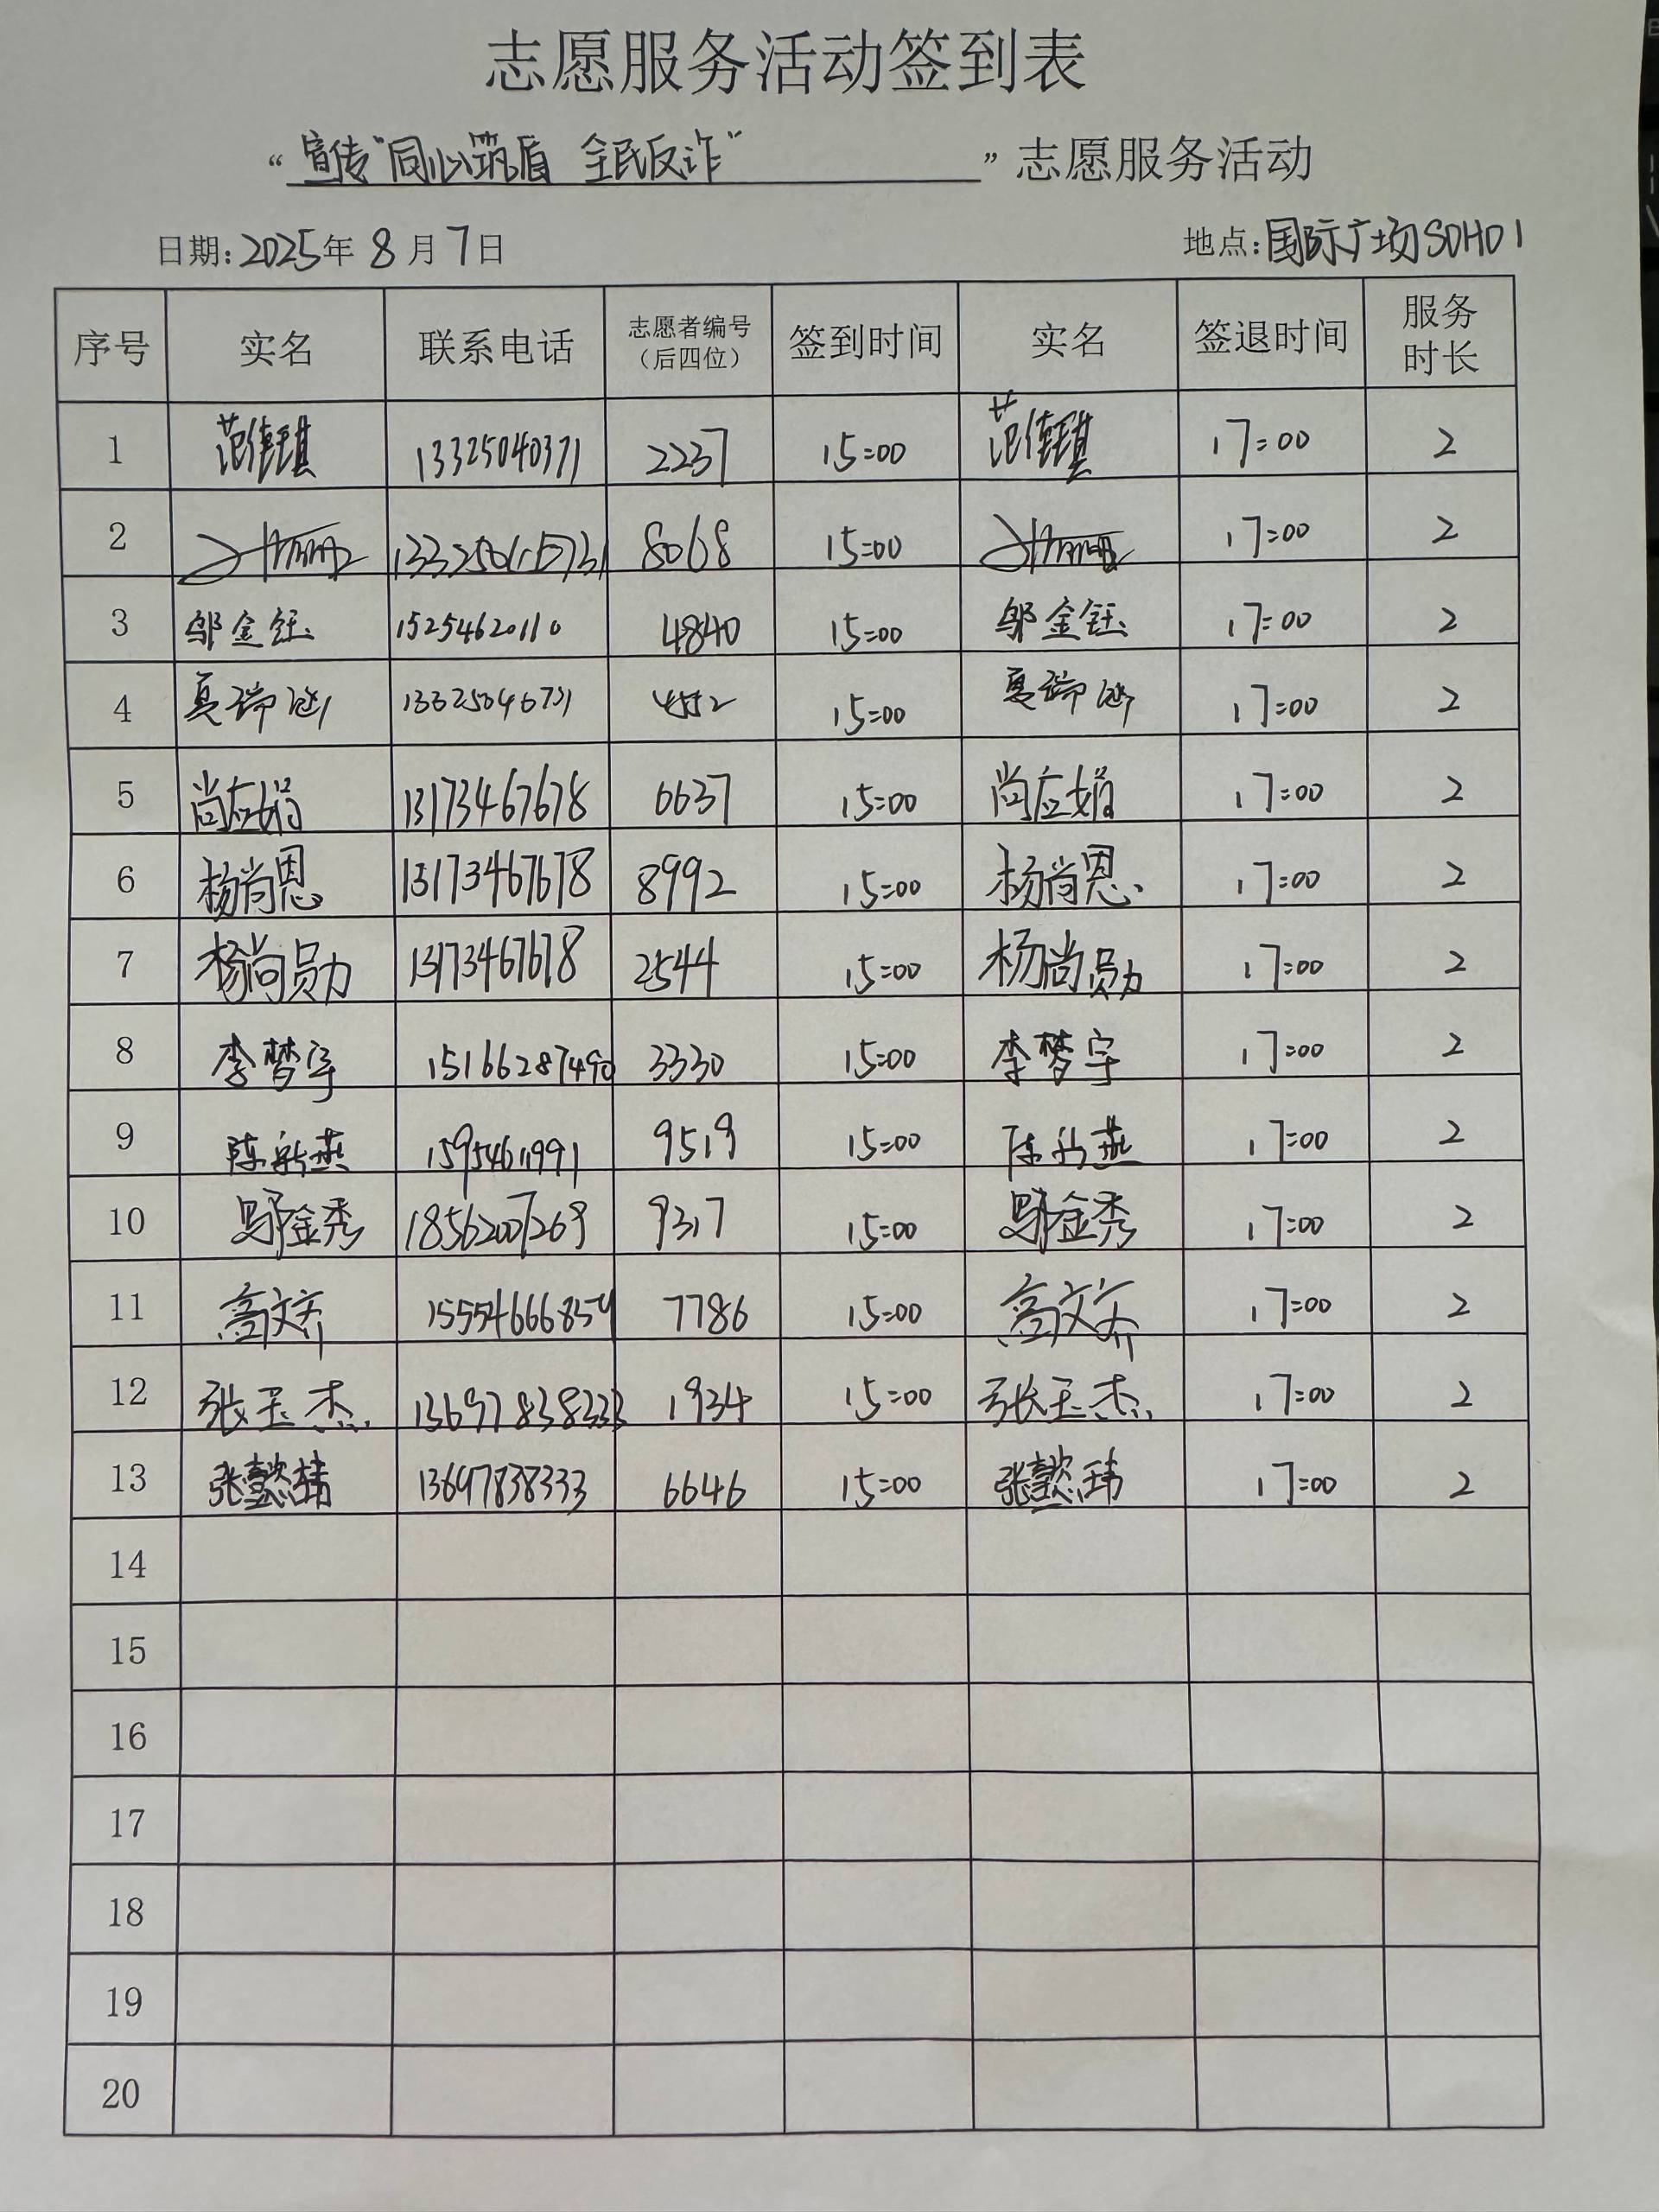 志愿服务活动签到表
“宣传"同心筑盾 全民反诈"”志愿服务活动
日期:2025年8月7日 地点:国际广场SOHO1
序号 实名 联系电话 志愿者编号(后四位) 签到时间 实名 签退时间 服务时长
1 范倩琪 13325040371 2237 15:00 范倩琪 17:00 2
2 8068 15:00 17:00 2
3 邬金钰 15254620110 4840 15:00 邬金钰 17:00 2
4 13325046731 4552 15:00 17:00 2
5 尚应娟 13173467678 6637 15:00 尚应娟 17:00 2
6 杨尚恩 13173467678 8992 15:00 杨尚恩 17:00 2
7 杨尚勋 13173467678 2544 15:00 杨尚勋 17:00 2
8 李梦宇 15166287490 3330 15:00 李梦宇 17:00 2
9 陈新燕 15954611991 9519 15:00 陈新燕 17:00 2
10 邬金秀 18562007269 9317 15:00 邬金秀 17:00 2
11 高文乔 15554666854 7786 15:00 高文乔 17:00 2
12 张玉杰 13697838333 1934 15:00 张玉杰 17:00 2
13 张懿玮 13697838333 6646 15:00 张懿玮 17:00 2
14
15
16
17
18
19
20